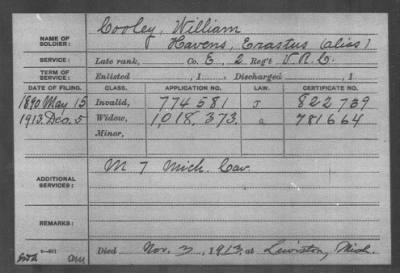 NAME OF SOLDIER: Cooley, William
Havens, Erastus (alias)
SERVICE: Late rank, Co. E, 2 Reg't V.R.C.
TERM OF SERVICE: Enlisted , 1 Discharged , 1
DATE OF FILING. CLASS. APPLICATION NO. LAW. CERTIFICATE NO.
1890 May 15 Invalid, 774 581 J 822 739
1913. Dec. 5 Widow, 1,018,373. a 781664
Minor,
ADDITIONAL SERVICES: M 7 Mich. Cav.
REMARKS:
Died Nov. 3, 1913, at Lewiston, Mich.